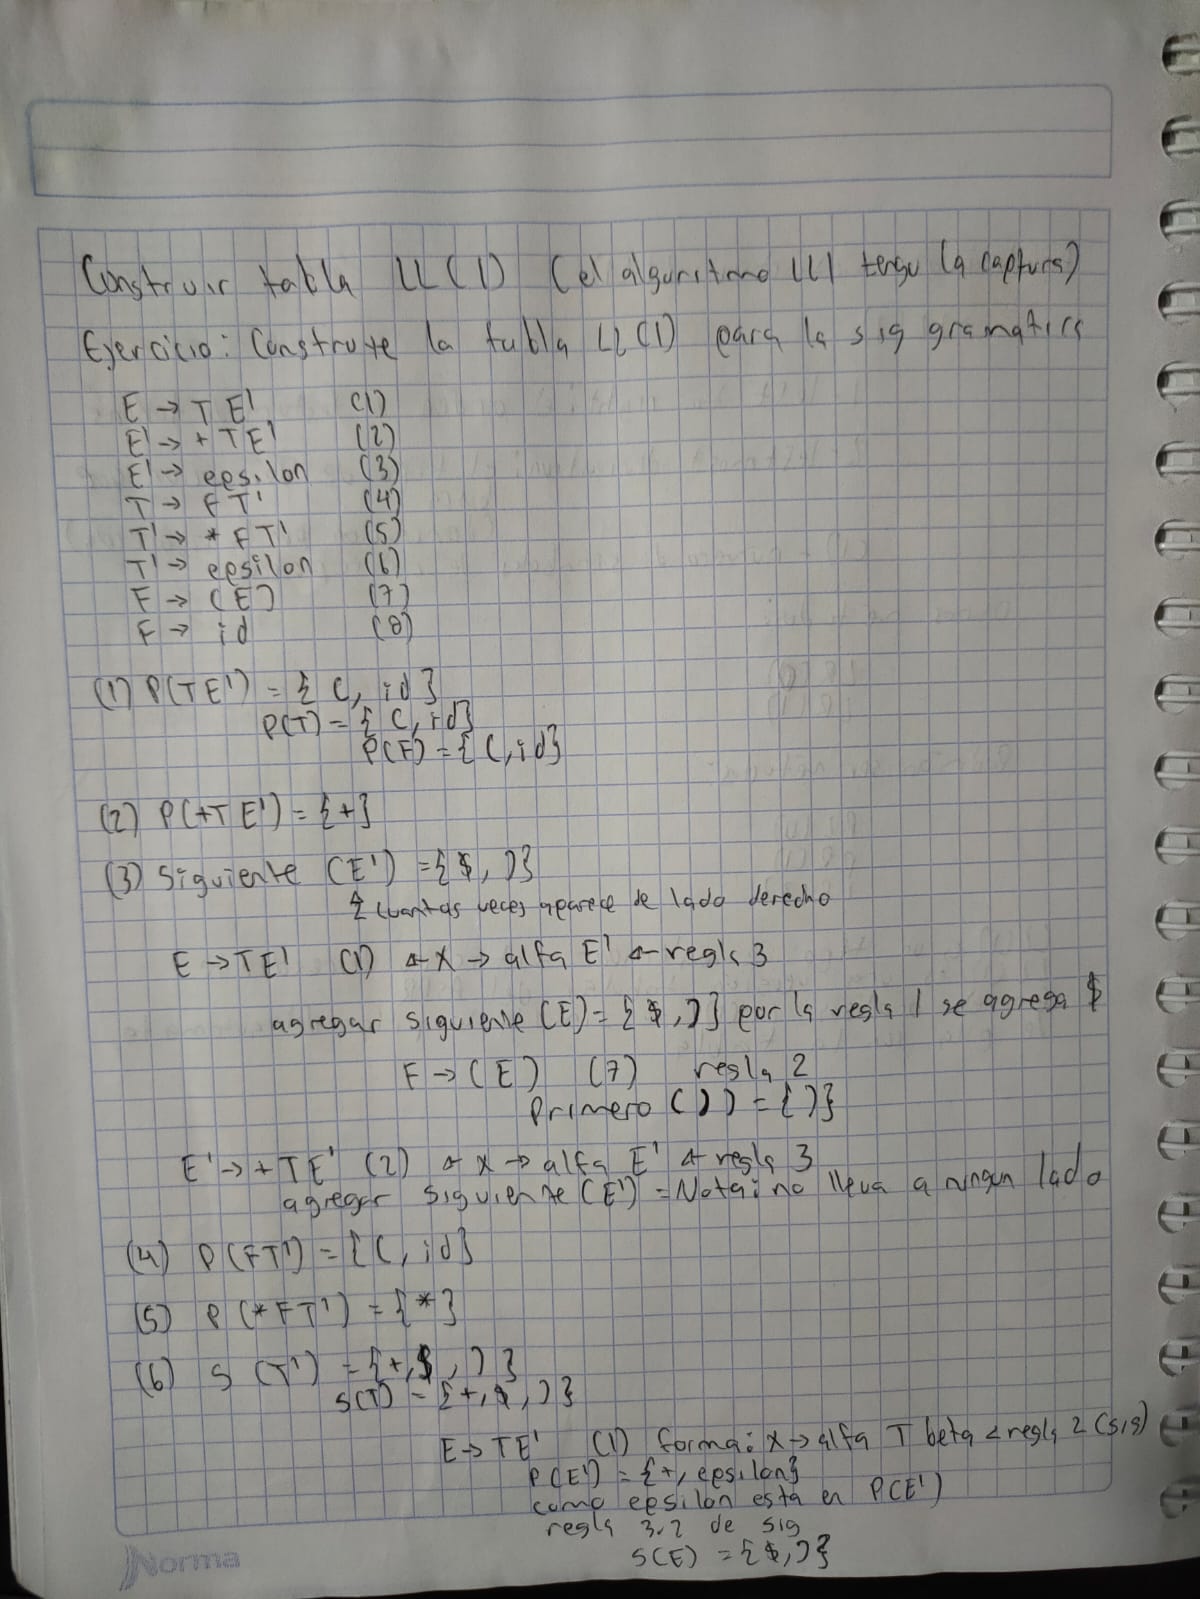 Construir tabla LL(1) (el algoritmo LL1 tengo la captura)
Ejercicio: Construye la tabla LL(1) para la sig gramatica
E → T E' (1)
E' → + T E' (2)
E' → eepsilon (3)
T → F T' (4)
T' → * F T' (5)
T' → eepsilon (6)
F → (E) (7)
F → id (8)
(1) P(TE') = { (, id }
P(T) = { (, id}
P(F) = { (, id}
(2) P(+TE') = {+}
(3) Siguiente (E') = {$, )}
cuantas veces aparece de lado derecho
E → TE' (1) ← X → alfa E' ← regla 3
agregar siguiente (E) = { $, )} por la regla 1 se agrega $
F → (E) (7) regla 2
Primero ( ) ) = { )}
E' → + TE' (2) ← X → alfa E' ← regla 3
agregar siguiente (E') = Nota: no lleva a ningun lado
(4) P(FT') = { (, id}
(5) P(*FT') = {*}
(6) S (T') = {+, $, ) }
S(T) = {+, $, )}
E → TE' (1) forma: X → alfa T beta < regla 2 (sig)
P(E') = {+, eepsilon}
como eepsilon esta en P(E')
regla 3.2 de sig
S(E) = {$, )}
Norma